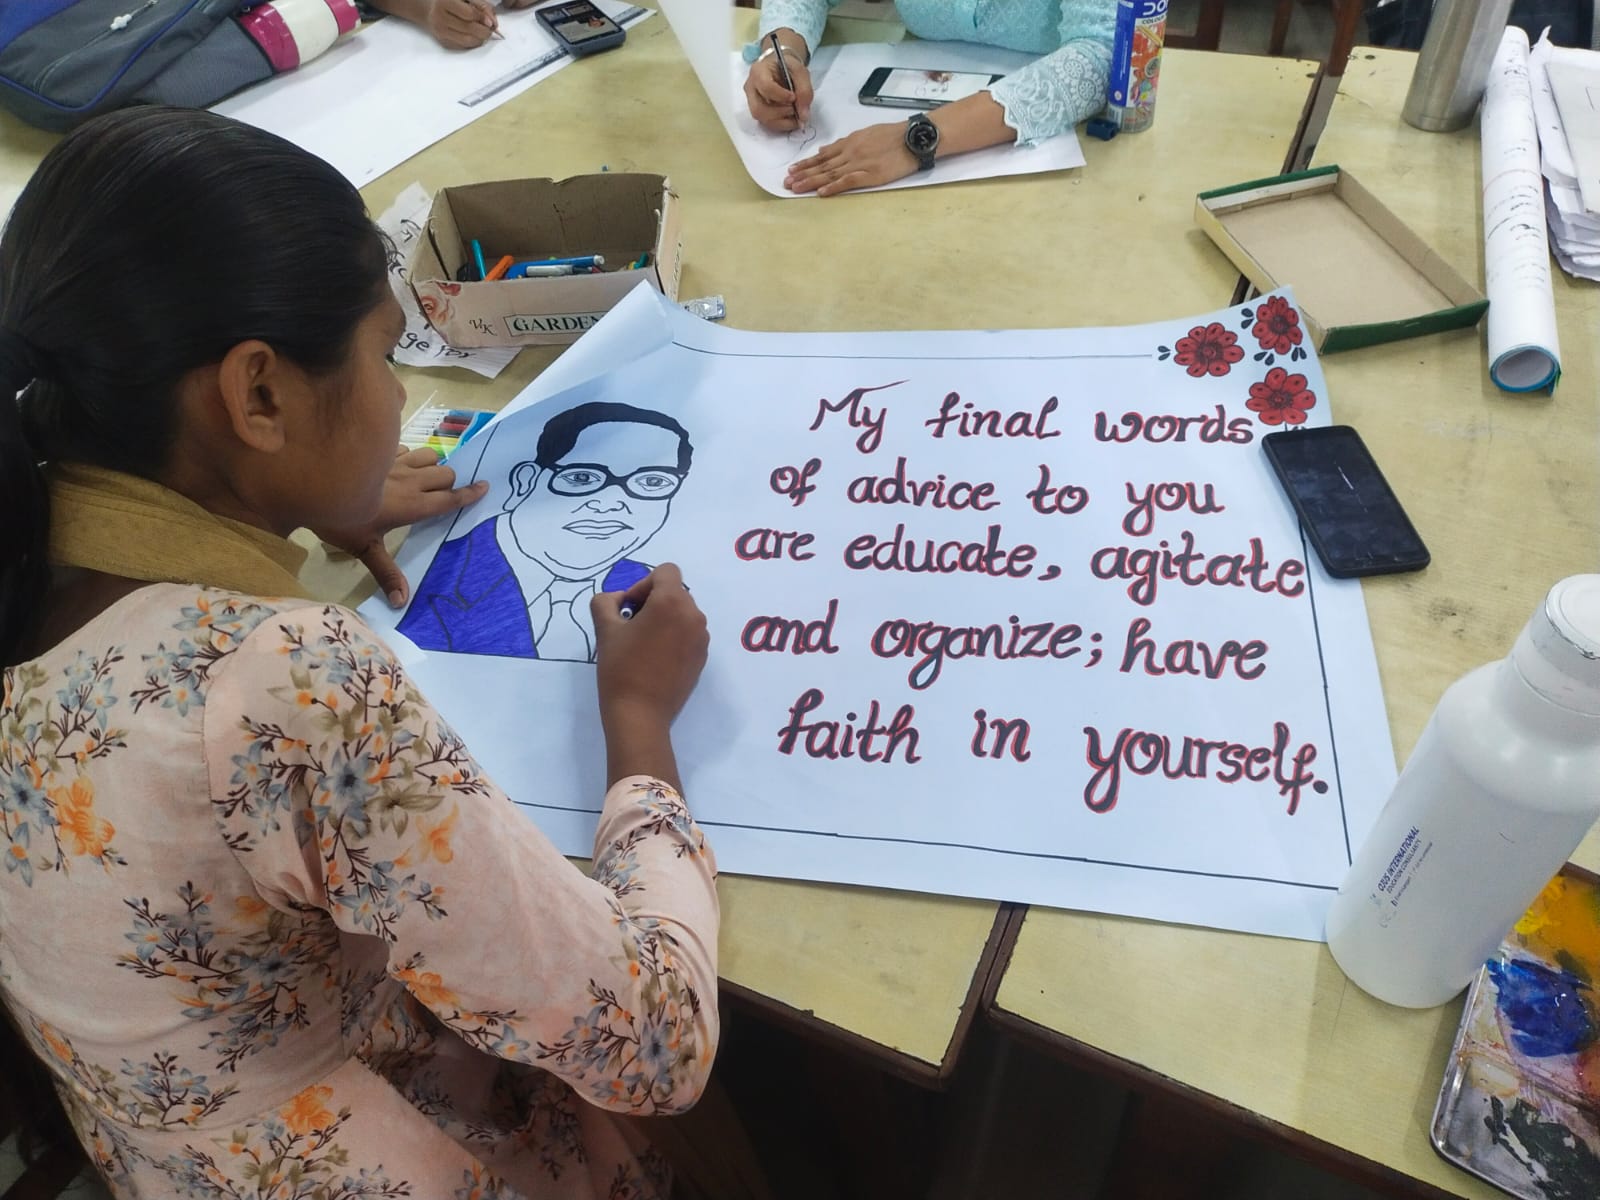 My final words
of advice to you
are educate, agitate
and organize; have
faith in yourself.
VK GARDEN
ge for
OZUS INTERNATIONAL
EDUCATION CONSULTANTS